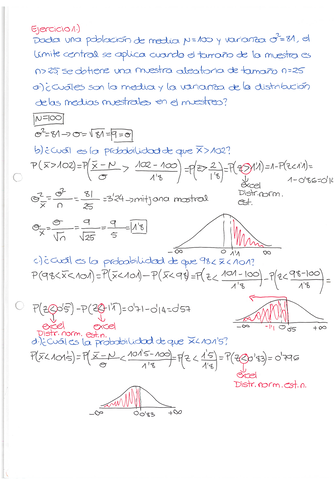 Ejercicio 1.)
Dada una población de media μ=100 y varianza σ²=81, el
límite central se aplica cuando el tamaño de la muestra es
n>25 se obtiene una muestra aleatoria de tamaño n=25
a) ¿Cuáles son la media y la varianza de la distribución
de las medias muestrales en el muestreo?
μ=100
σ²=81 → σ=√81=9=σ
b) ¿Cuál es la probabilidad de que x̄>102?
P(x̄>102)=P(x̄-μ/σ > 102-100/1'8)=P(z>2/1'8)=P(z>1'1)=1-P(z<1'1)=
1-0'86=0'1
excel
Distr.norm.
est.
σ²x̄=σ²/n=81/25=3'24→mitjana mostral
σx̄=σ/√n=9/√25=9/5=1'8
0 1'1
-∞ +∞
c) ¿Cuál es la probabilidad de que 98<x̄<101?
P(98<x̄<101)=P(x̄<101)-P(x̄<98)=P(z<101-100/1'8)-P(z<98-100/1'8)
P(z<0'5)-P(z<-1'1)=0'71-0'14=0'57
excel excel
Distr.norm.est.n.
-∞ -1'1 0 0'5 +∞
d) ¿Cuál es la probabilidad de que x̄<101'5?
P(x̄<101'5)=P(x̄-μ/σ<101'5-100/1'8)=P(z<1'5/1'8)=P(z<0'83)=0'796
excel
Distr.norm.est.n.
-∞ 0 0'83 +∞